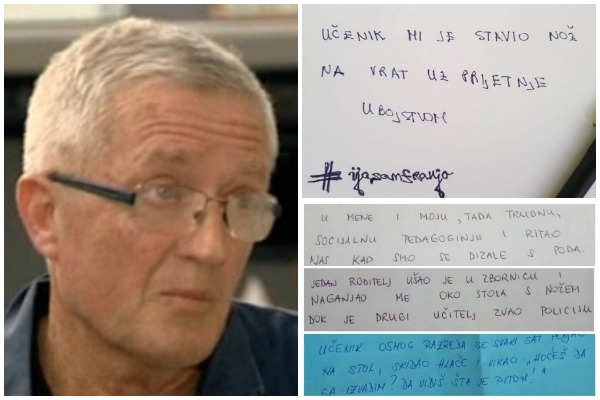 UČENIK MI JE STAVIO NOŽ
NA VRAT UZ PRIJETNJE
UBOJSTVOM
#ijasamfranjo
U MENE I MOJU, TADA TRUDNU,
SOCIJALNU PEDAGOGINJU I RITAO
NAS KAD SMO SE DIZALE S PODA.
JEDAN RODITELJ UŠAO JE U ZBORNICU I
NAGANJAO ME OKO STOLA S NOŽEM
DOK JE DRUGI UČITELJ ZVAO POLICIJU
UČENIK OSMOG RAZREDA SE SVAKI SAT PENJAO
NA STOL, SKIDAO HLAČE I VIKAO „HOĆEŠ DA
GA IZVADIM? DA VIDIŠ ŠTA JE PITON!"